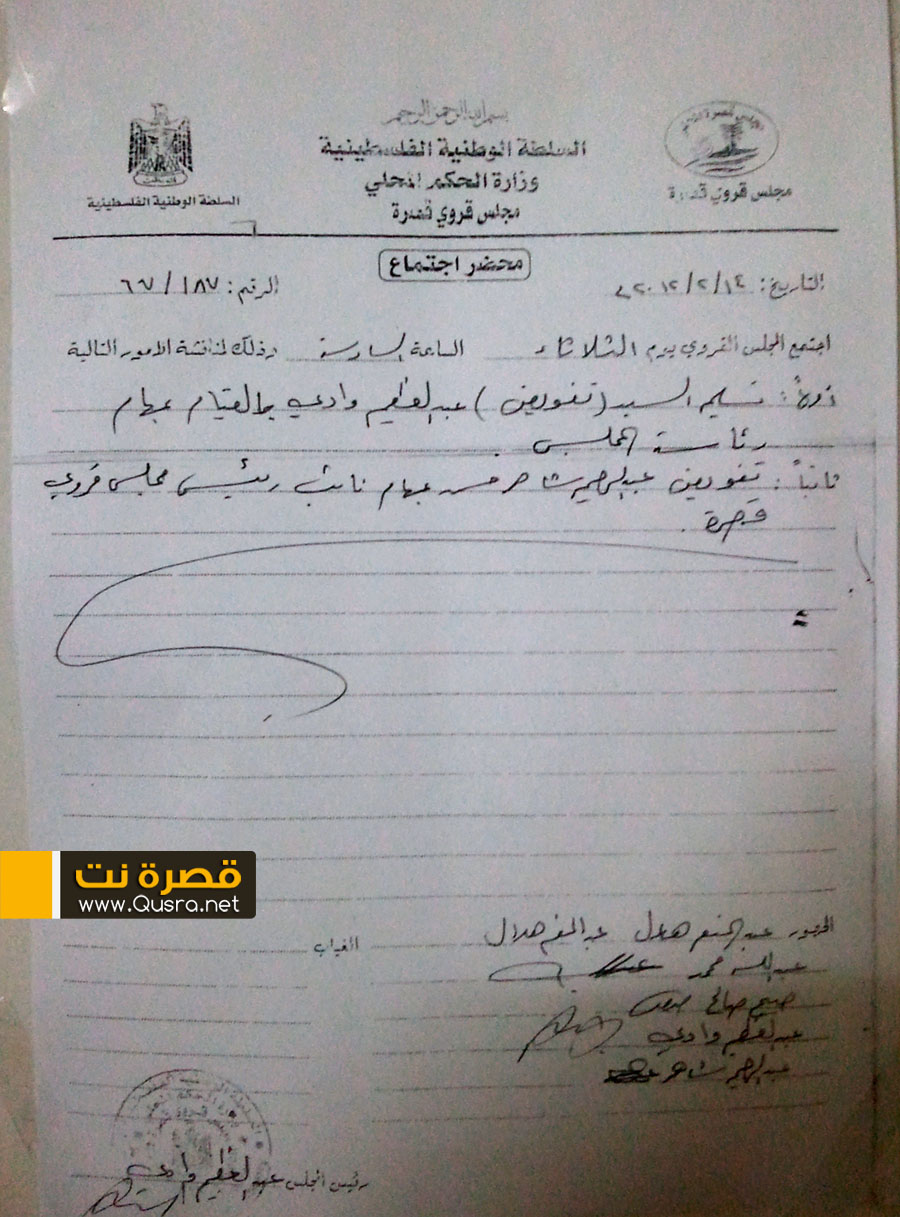 بسم الله الرحمن الرحيم
السلطة الوطنية الفلسطينية
وزارة الحكم المحلي
مجلس قروي قصرة
مجلس قروي قصرة
السلطة الوطنية الفلسطينية
محضر اجتماع
التاريخ: ١٤/٢/٢٠١٢م
الرقم: ٦٧/١٨٧
اجتمع المجلس القروي يوم الثلاثاء الساعة السادسة وذلك لمناقشة الامور التالية
أولاً: تسليم السيد (تفويض) عبد العظيم وادي بالقيام بمهام
رئاسة المجلس.
ثانياً: تفويض عبد الرحيم شاهر حسن بمهام نائب رئيس مجلس قروي
قصرة.
قصرة نت
www.Qusra.net
الحضور عبد المنعم هلال عبد المنعم هلال
الغياب
عبد الله محمد
صبحي صالح
عبد العظيم وادي
عبد الرحيم شاهر
رئيس المجلس عبد العظيم وادي